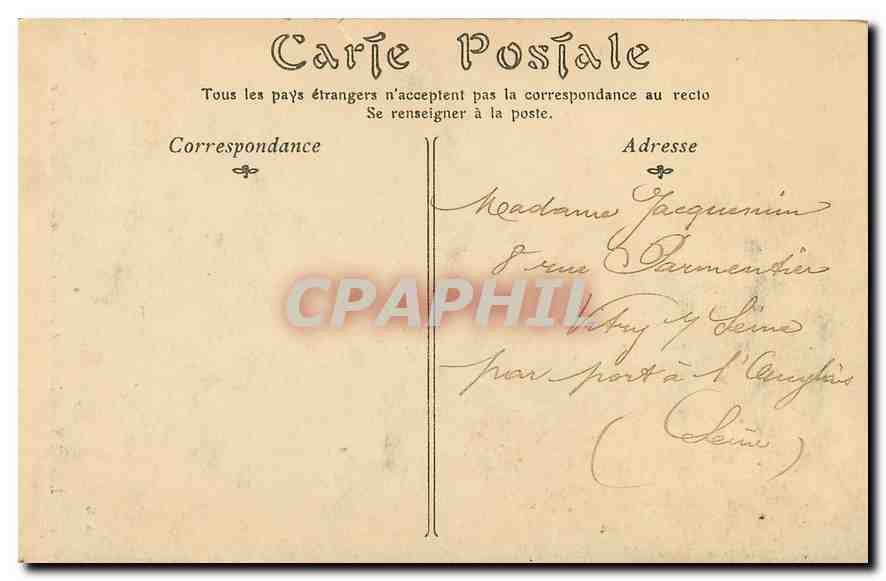 Carte Postale
Tous les pays étrangers n'acceptent pas la correspondance au recto
Se renseigner à la poste.
Correspondance
Adresse
Madame Jacquemin
8 rue Parmentier
Vitry s/ Seine
par port à l'Anglais
(Seine)
CPAPHIL